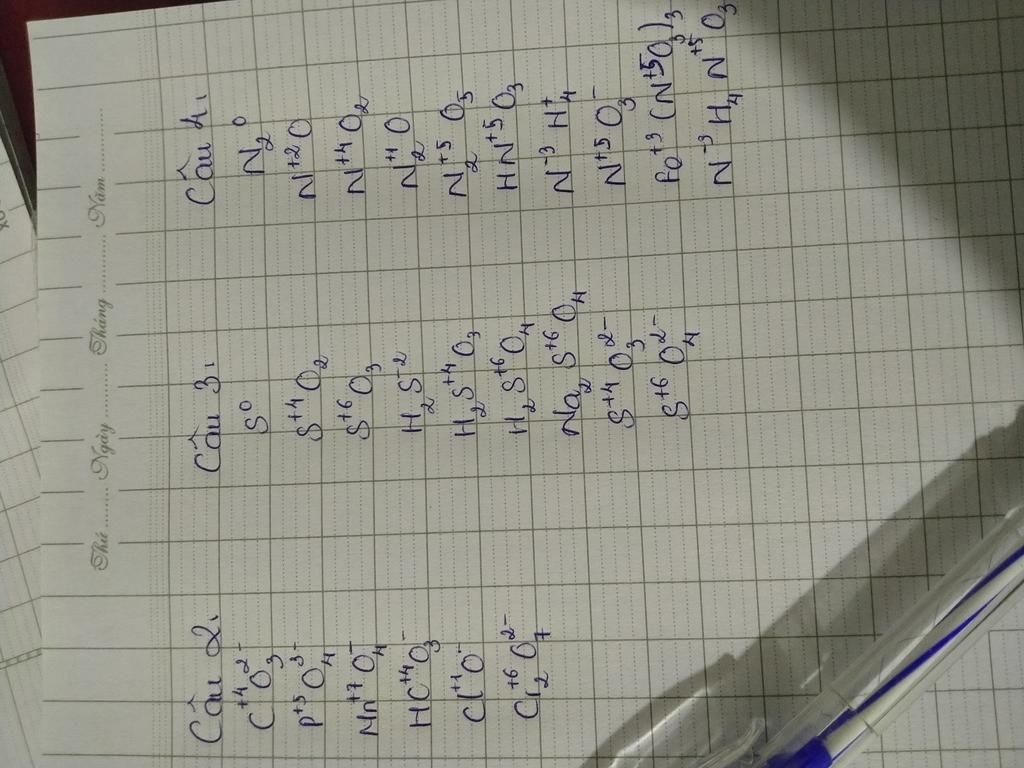 Thứ ........ Ngày ........ Tháng ........ Năm ........
Câu 2.
C⁺⁴O₃²⁻
P⁺⁵O₄³⁻
Mn⁺⁷O₄⁻
HC⁺⁴O₃⁻
Cl⁺¹O⁻
Cr₂⁺⁶O₇²⁻
Câu 3.
S⁰
S⁺⁴O₂
S⁺⁶O₃
H₂S⁻²
H₂S⁺⁴O₃
H₂S⁺⁶O₄
Na₂S⁺⁶O₄
S⁺⁴O₃²⁻
S⁺⁶O₄²⁻
Câu 4.
N₂⁰
N⁺²O
N⁺⁴O₂
N₂⁺¹O
N₂⁺⁵O₅
HN⁺⁵O₃
N⁻³H₄⁺
N⁺⁵O₃⁻
Fe⁺³(N⁺⁵O₃)₃
N⁻³H₄N⁺⁵O₃